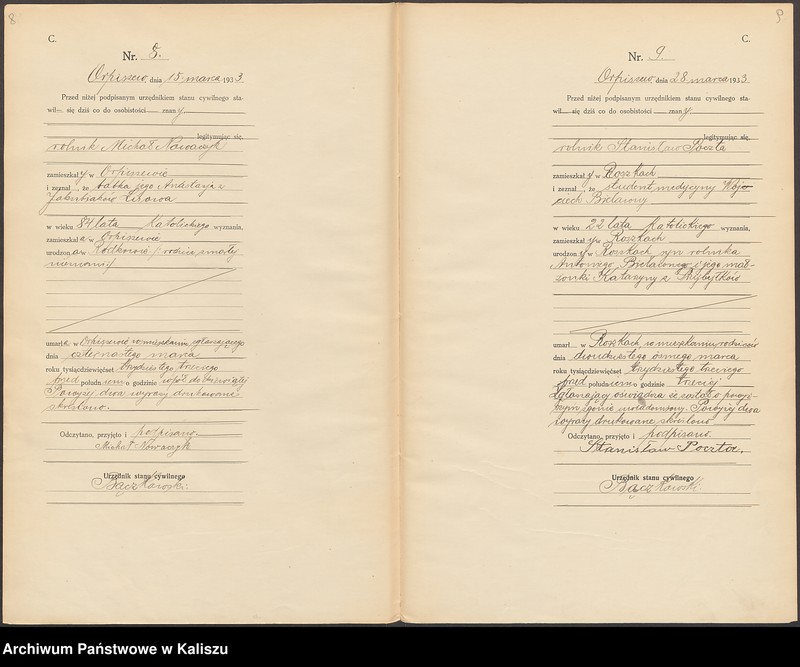 8
C.
Nr. 8.
Orpiszew, dnia 15. marca 1933
Przed niżej podpisanym urzędnikiem stanu cywilnego sta-
wił— się dziś co do osobistości — znany,
legitymując się,
rolnik Michał Nowaczyk
zamieszkały w Orpiszewie
i zeznał —, że babka jego Anastazja z
Jakubiaków
w wieku 84 lata katolickiego wyznania,
zamieszkała w Orpiszewie
urodzona w rodzice zmarły
umarła w Orpiszewie w mieszkaniu zgłaszającego
dnia czternastego marca
roku tysiącdziewięćset trzydziestego trzeciego
przed południem o godzinie wpół do
Powyżej dwa wyrazy drukowane
skreślono.
Odczytano, przyjęto i podpisano
Michał Nowaczyk
Urzędnik stanu cywilnego
Bączkowski.
9
C.
Nr. 9.
Orpiszew, dnia 28 marca 1933
Przed niżej podpisanym urzędnikiem stanu cywilnego sta-
wił— się dziś co do osobistości — znany,
legitymując się,
rolnik Stanisław Poczta
zamieszkały w Roszkach
i zeznał —, że student medycyny Wojciech
Bielawny
w wieku 22 lata katolickiego wyznania,
zamieszkały w Roszkach
urodzony w Roszkach, syn rolnika
Antoniego Bielawnego i jego mał-
żonki Katarzyny z Przybyłków
umarł— w Roszkach, w mieszkaniu rodziców
dnia dwudziestego ósmego marca
roku tysiącdziewięćset trzydziestego trzeciego
przed południem o godzinie trzeciej
Zgłaszający oświadcza że został o powyż-
szym zgonie uwiadomiony. Powyżej dwa
wyrazy drukowane skreślono
Odczytano, przyjęto i podpisano.
Stanisław Poczta.
Urzędnik stanu cywilnego
Bączkowski.
Archiwum Państwowe w Kaliszu